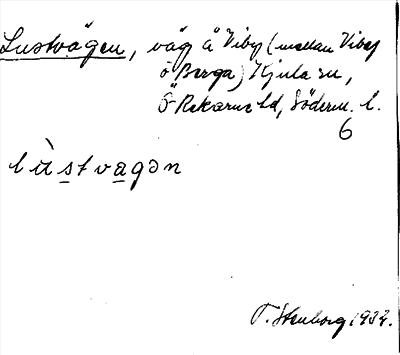 Lustvägen, väg å Viby (mellan Viby
o Berga) Kjula sn,
Ö Rekarne hd, Söderm. l.
6
lùstvagən
T. Stenborg 1934.